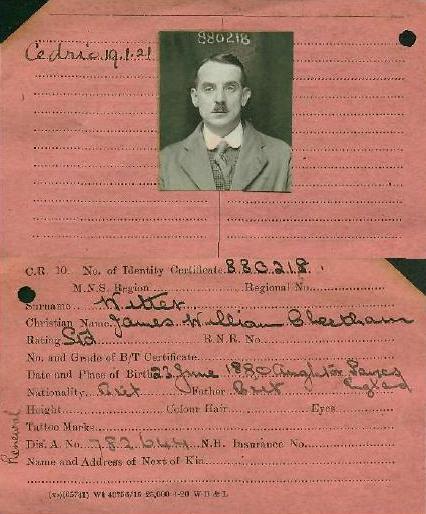 880218
Cedric 19.1.21
C.R. 10. No. of Identity Certificate 880218
M.N.S. Region Regional No.
Surname Witter
Christian Name James William Cheetham
Rating Std R.N.R. No.
No. and Grade of B/T Certificate
Date and Place of Birth 23 June 1880
England
Nationality Brit Father Brit
Height Colour Hair Eyes
Tattoo Marks
Dis. A. No. 782644 N.H. Insurance No.
Name and Address of Next of Kin
Renewal